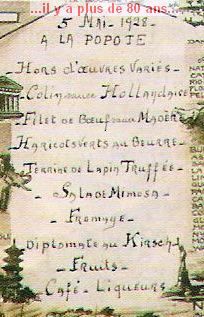 ...il y a plus de 80 ans...
5 MAI - 1928 -
A LA POPOTE
Hors d'œuvres Variés -
- Colin sauce Hollandaise
Filet de Bœuf sauce Madère
Haricots verts au Beurre
Terrine de Lapin Truffée -
- Salade Mimosa -
- Fromage -
Diplomate au Kirsch
- Fruits -
- Café - Liqueurs